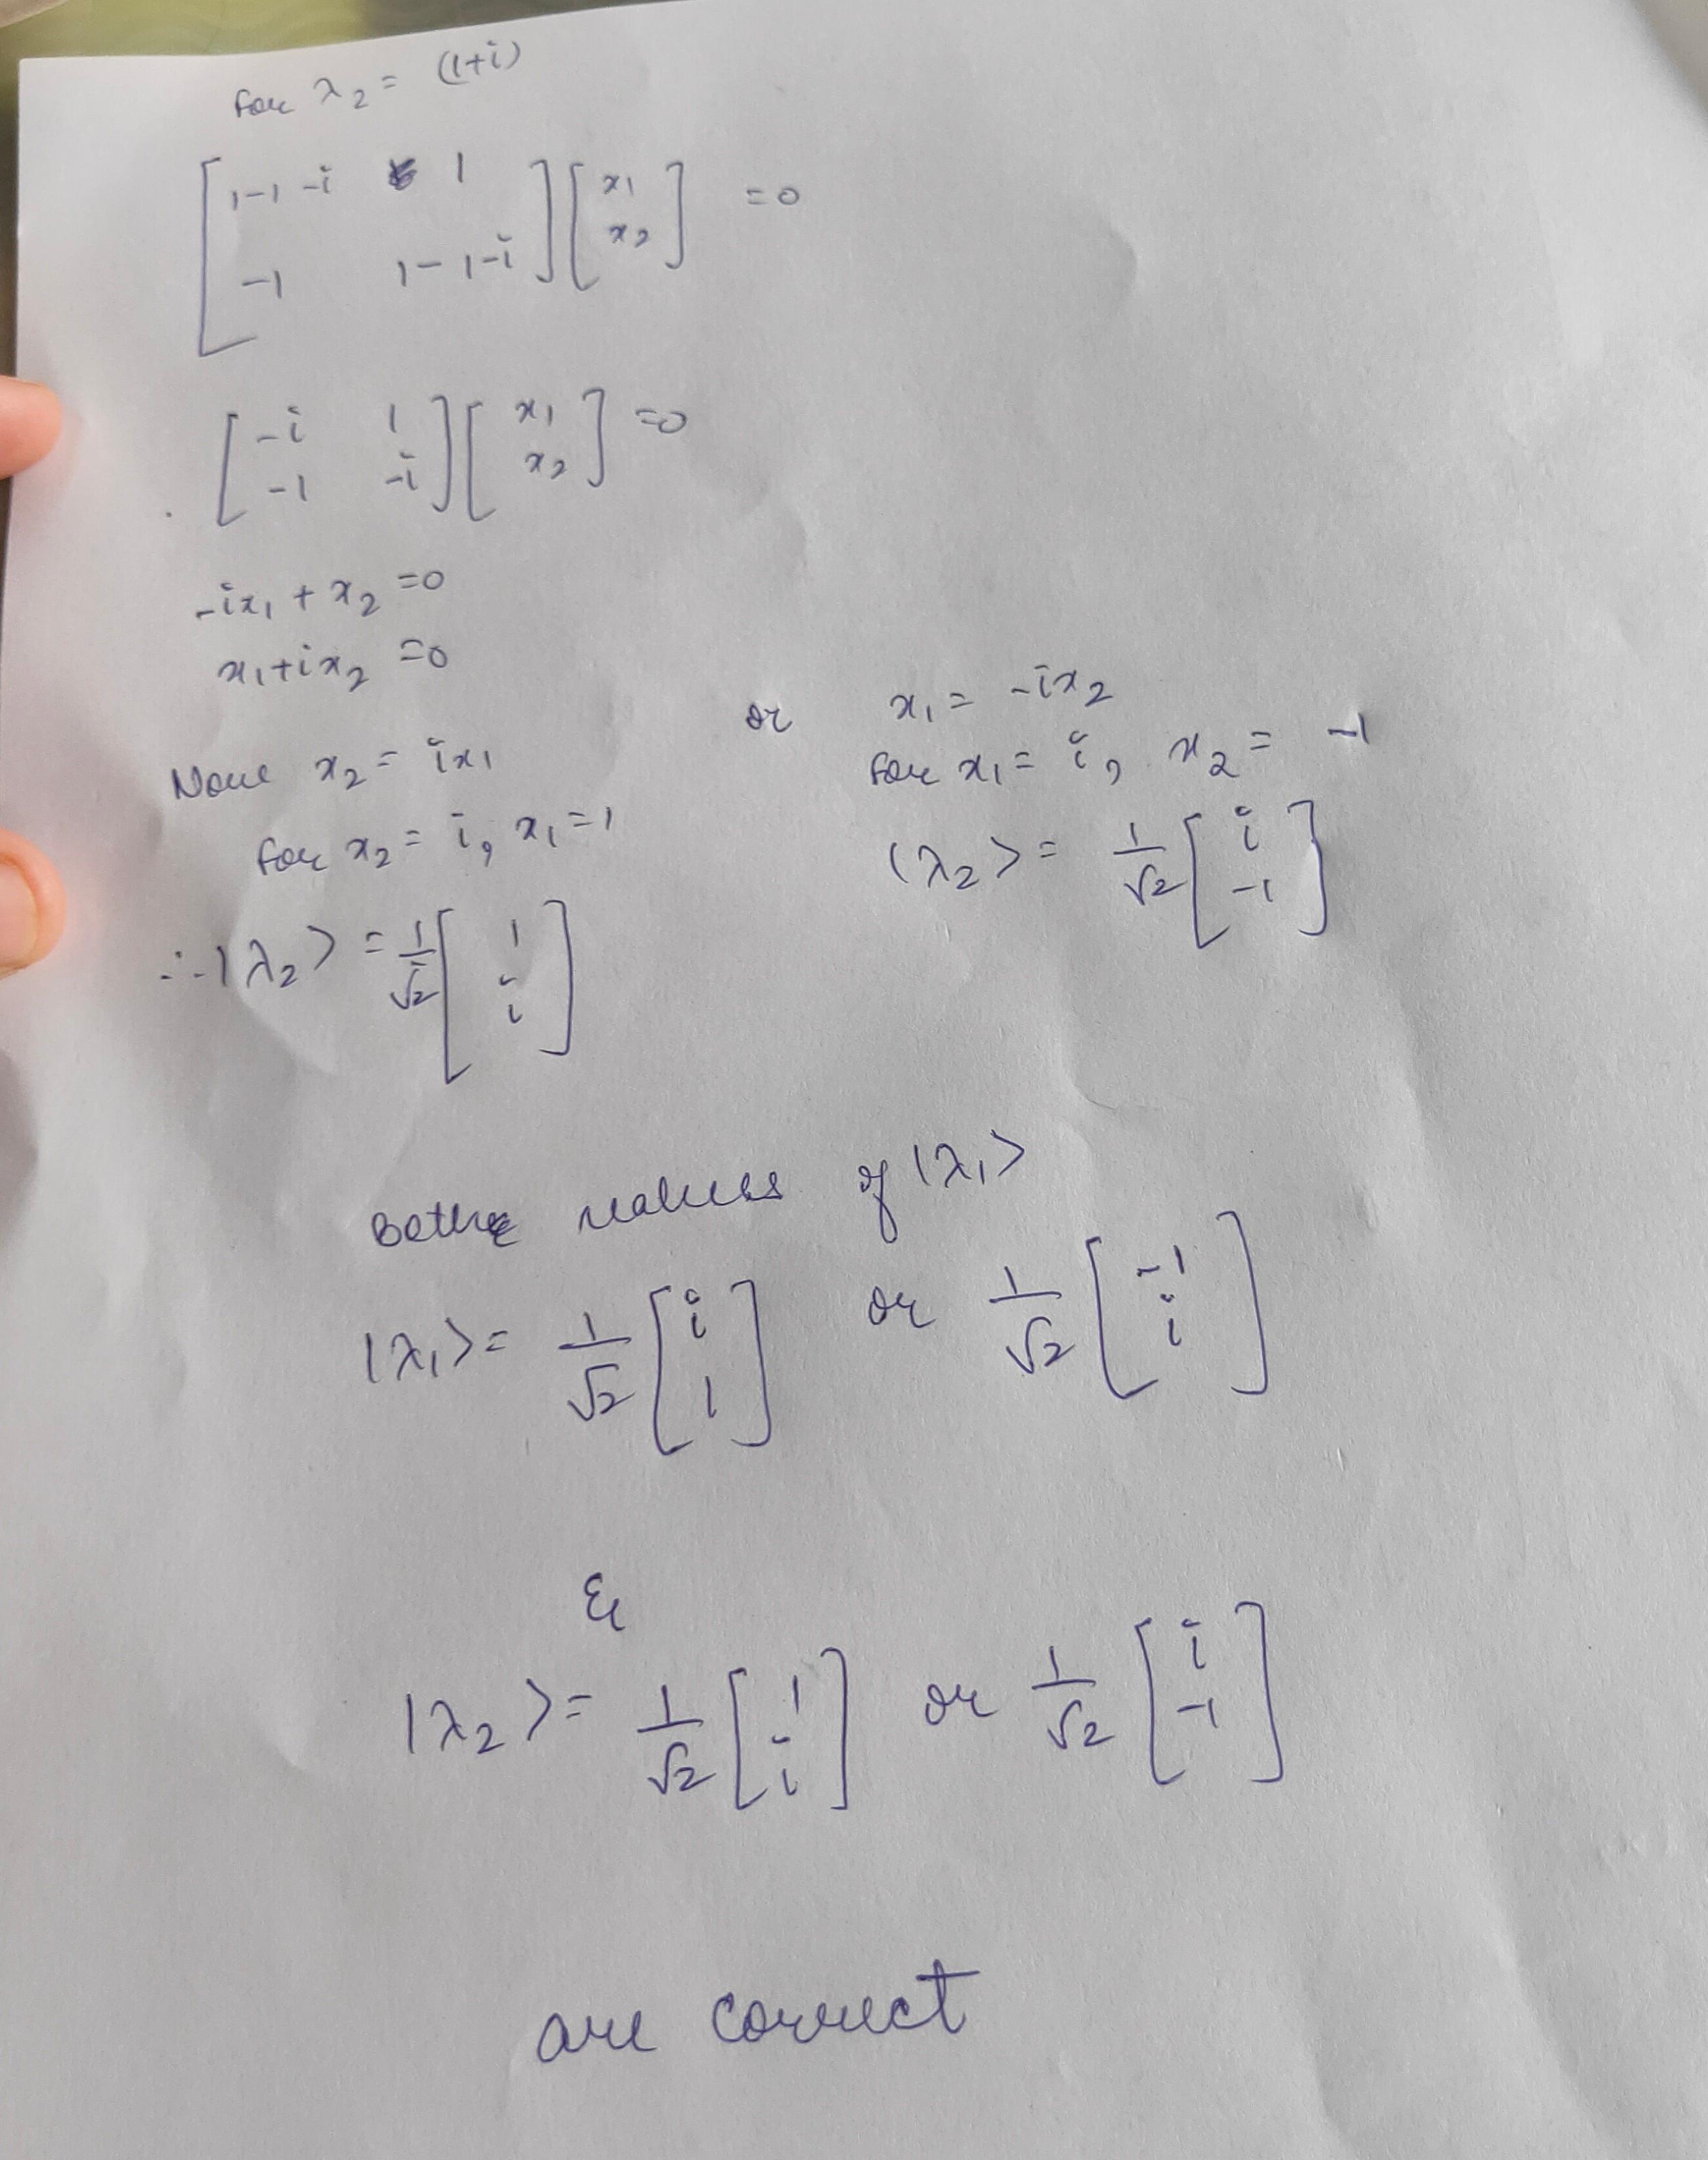 For λ₂ = (1+i)
[1-1-i 1
-1 1-1-i] [x₁
x₂] =0
[-i 1
-1 -i] [x₁
x₂] =0
-ix₁ + x₂ =0
x₁+ix₂ =0
Now x₂ = ix₁
for x₂ = i, x₁=1
∴ |λ₂> = 1/√2 [1
i]
or x₁ = -ix₂
for x₁ = i, x₂ = -1
|λ₂> = 1/√2 [i
-1]
Both values of |λ₁>
|λ₁> = 1/√2 [i
1] or 1/√2 [-1
i]
&
|λ₂> = 1/√2 [1
i] or 1/√2 [i
-1]
are correct